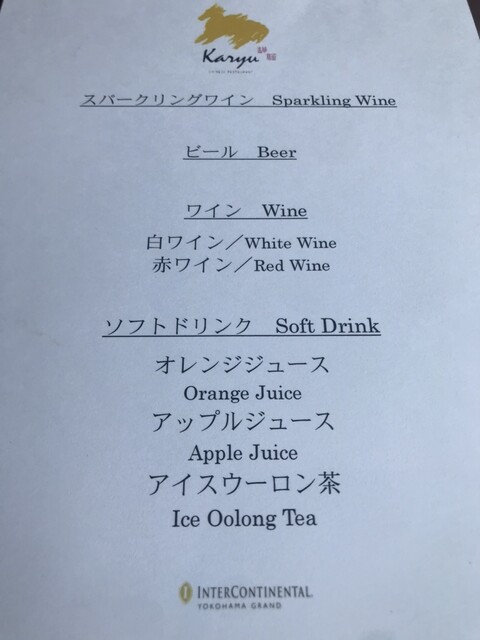 Karyu
スパークリングワイン Sparkling Wine
ビール Beer
ワイン Wine
白ワイン／White Wine
赤ワイン／Red Wine
ソフトドリンク Soft Drink
オレンジジュース
Orange Juice
アップルジュース
Apple Juice
アイスウーロン茶
Ice Oolong Tea
INTERCONTINENTAL
YOKOHAMA GRAND